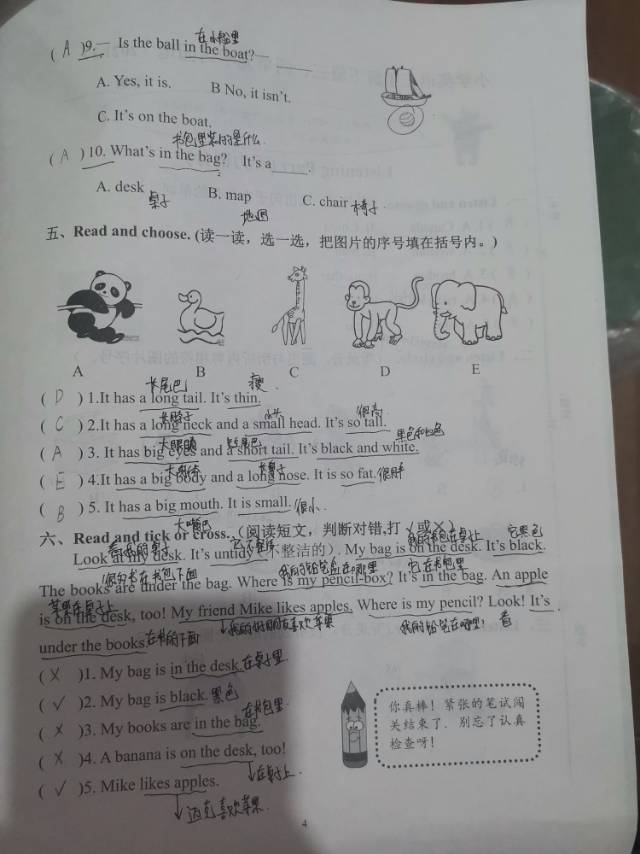 在小船里
( A )9.— Is the ball in the boat?—______
A. Yes, it is. B No, it isn't.
C. It's on the boat.
书包里装的是什么
( A ) 10. What's in the bag? It's a_____.
A. desk 桌子 B. map 地图 C. chair 椅子.
五、Read and choose. (读一读，选一选，把图片的序号填在括号内。)
A B C D E
长尾巴 瘦.
( D ) 1.It has a long tail. It's thin.
长脖子 小头 很高
( C ) 2.It has a long neck and a small head. It's so tall.
大眼睛 短尾巴 黑色和白色
( A ) 3. It has big eyes and a short tail. It's black and white.
大身体 长鼻子
( E ) 4.It has a big body and a long nose. It is so fat. 很胖
( B ) 5. It has a big mouth. It is small. 很小.
大嘴巴
六、Read and tick or cross.（阅读短文，判断对错,打 √ 或 ×）
看我的桌子 它不整洁 我的书包在桌上 它黑色
Look at my desk. It's untidy (不整洁的). My bag is on the desk. It's black.
书在书包下面 我的铅笔盒在哪里 它在书包里
The books are under the bag. Where is my pencil-box? It's in the bag. An apple
苹果在桌子上
is on the desk, too! My friend Mike likes apples. Where is my pencil? Look! It's
↓我的好朋友喜欢苹果 我的铅笔在哪里? 看
under the books. 在书的下面
( × )1. My bag is in the desk. 在桌子里
( √ )2. My bag is black. 黑色
在书包里.
( × )3. My books are in the bag.
( × )4. A banana is on the desk, too!
↓在桌子上.
( √ )5. Mike likes apples.
↓迈克喜欢苹果.
你真棒！紧张的笔试闯
关结束了．别忘了认真
检查呀！
4